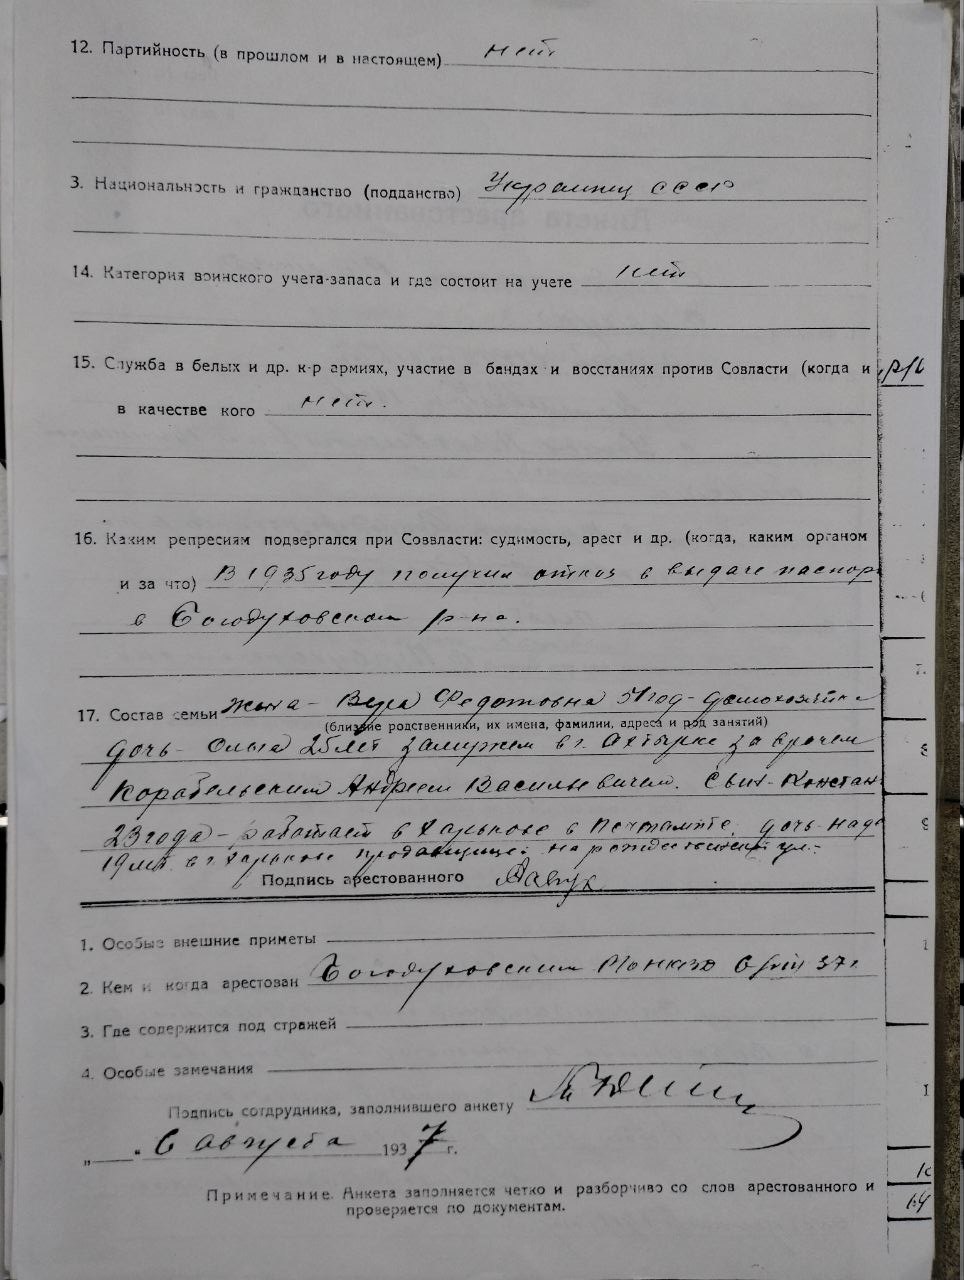 12. Партийность (в прошлом и в настоящем) нет
3. Национальность и гражданство (подданство) Украинец СССР
14. Категория воинского учета-запаса и где состоит на учете нет
15. Служба в белых и др. к-р армиях, участие в бандах и восстаниях против Совласти (когда и
в качестве кого нет.
16. Каким репресиям подвергался при Соввласти: судимость, арест и др. (когда, каким органом
и за что) В 1935 году получил отказ в выдаче паспор
в Богодуховском р-не.
17. Состав семьи жена - Вера Федотовна 51 год - домохозяйка
(близкие родственники, их имена, фамилии, адреса и род занятий)
дочь - Ольга 25 лет замужем в г. Ахтырке за врачем
Корабельским Андреем Васильевичем. Сын - Констан
23 года - работает в Харькове в почтампте, дочь - над
19 лет в г. Харькове продавщицей на рождественской ул. -
Подпись арестованного
1. Особые внешние приметы
2. Кем и когда арестован Богодуховским РОНКВД 6/VIII 37 г.
3. Где содержится под стражей
4. Особые замечания
Подпись сотрудника, заполнившего анкету
„ " 6 августа 1937 г.
Примечание. Анкета заполняется четко и разборчиво со слов арестованного и
проверяется по документам.